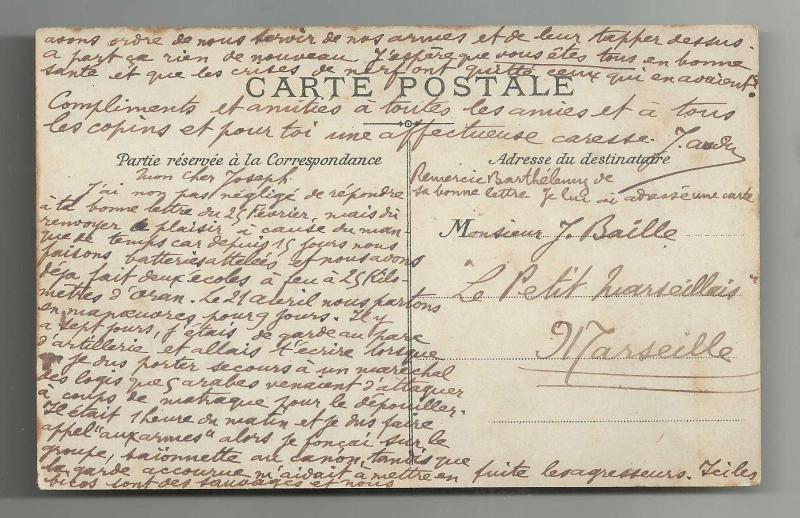 CARTE POSTALE
Partie réservée à la Correspondance
Mon cher Joseph
J'ai non pas négligé de répondre
à ta bonne lettre du 25 février, mais dû
renvoyer ce plaisir à cause du man-
que de temps car depuis 15 jours nous
faisons batteries attelées et nous avons
déjà fait deux écoles à feu à 25 kilo-
mètres d'Oran. Le 21 avril nous partons
en manœuvres pour 9 jours. Il y
a sept jours, j'étais de garde au parc
d'artillerie et allais t'écrire lorsque
je dus porter secours à un maréchal
des logis que 5 arabes venaient d'attaquer
à coups de matraque pour le dépouiller.
Il était 1 heure du matin et je dus faire
appel "aux armes" alors je fonçai sur le
groupe, baïonnette au canon, tandis que
la garde accourue m'aidait à mettre en fuite les agresseurs. Ici les
bicos sont des sauvages et nous
avons ordre de nous servir de nos armes et de leur tapper dessus.
A part ça rien de nouveau. J'espère que vous êtes tous en bonne
santé et que les crises de nerf ont quitté ceux qui en avaient.
Compliments et amitiés à toutes les amies et à tous
les copins et pour toi une affectueuse caresse.
Adresse du destinataire
Remercie Barthélemy de
sa bonne lettre je lui ai adressé une carte
Monsieur J. Baille
"Le Petit Marseillais"
Marseille